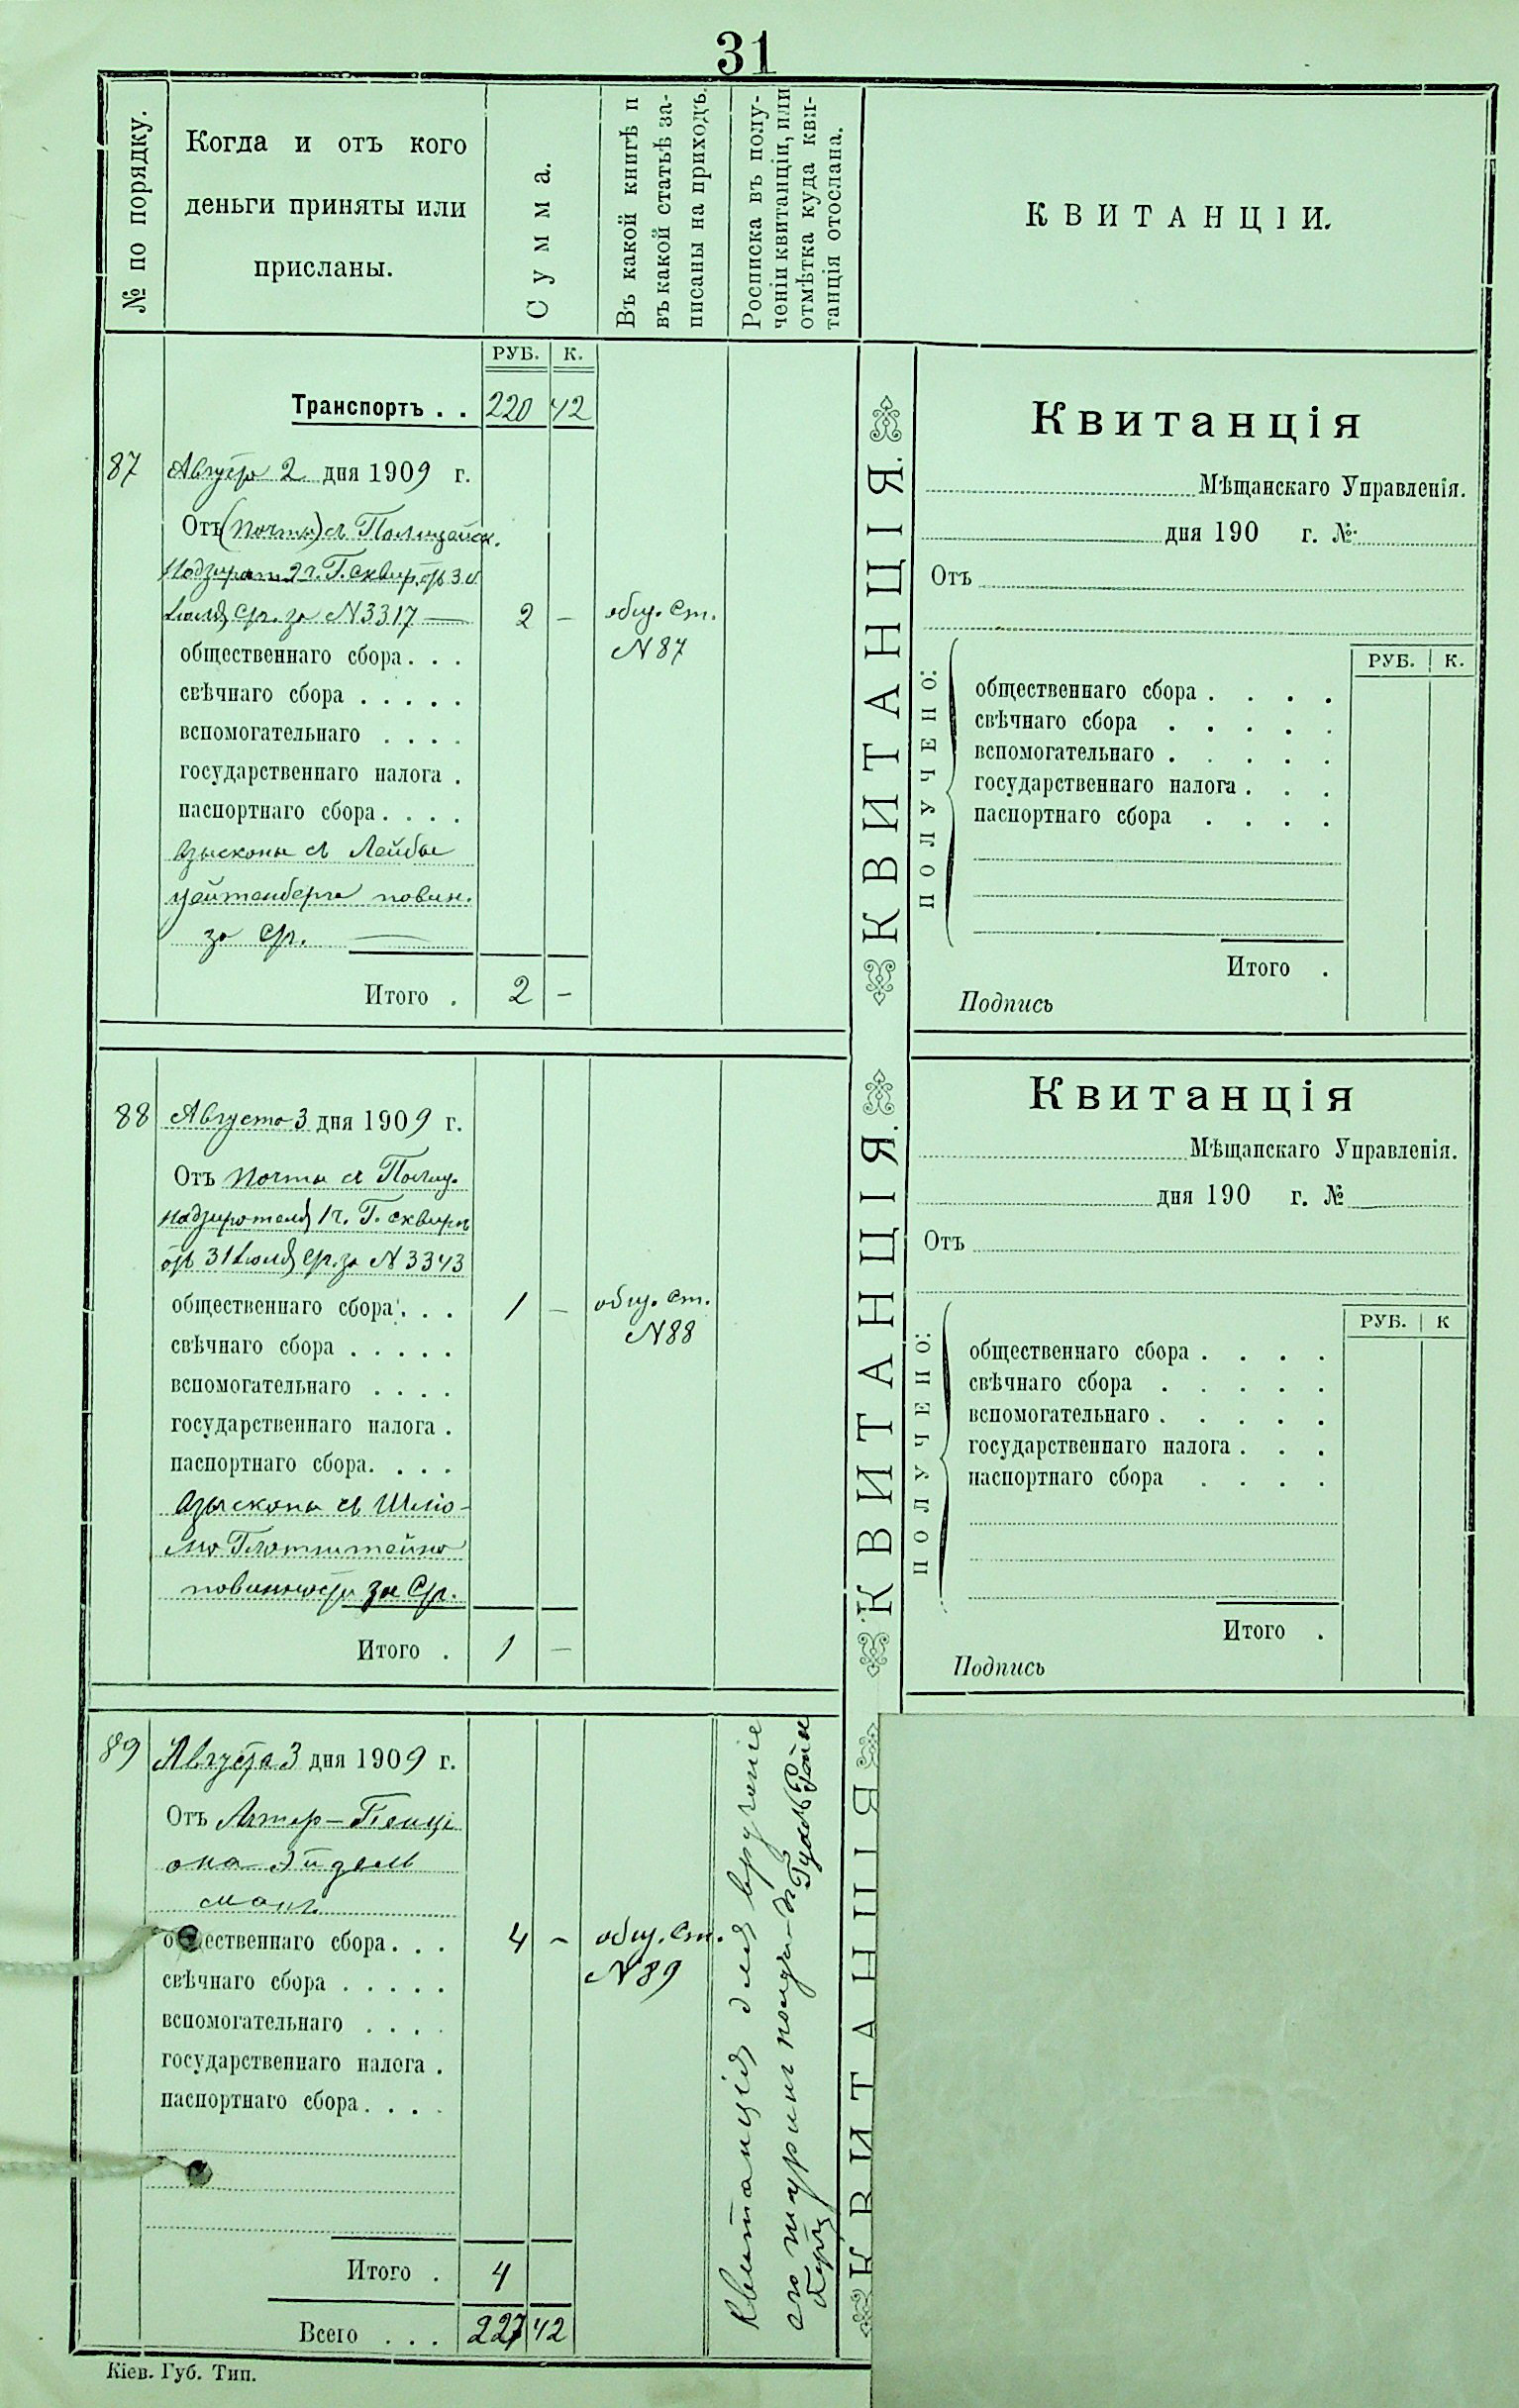 31
№ по порядку.
Когда и отъ кого
деньги приняты или
присланы.
Сумма.
Въ какой книгѣ и
въ какой статьѣ за-
писаны на приходъ.
Росписка въ полу-
ченіи квитанціи, или
отмѣтка куда кви-
танція отослана.
КВИТАНЦІИ.
РУБ. К.
Транспортъ . . 220 42
87 Августа 2 дня 1909 г.
Отъ (почты) съ Полицейск.
Надзират. 2 ч. Г. Сквиры отъ 31
Іюля с/г. за N 3317 — 2 — общ. ст.
N 87
общественнаго сбора . . .
свѣчнаго сбора . . . . .
вспомогательнаго . . . .
государственнаго налога .
паспортнаго сбора . . . .
взысканы съ Лейбы
Цейтенберга повин.
за с/г. —
Итого . 2 —
КВИТАНЦІЯ.
Квитанція
Мѣщанскаго Управленія.
дня 190 г. №
Отъ
ПОЛУЧЕНО:
РУБ. К.
общественнаго сбора . . . .
свѣчнаго сбора . . . . .
вспомогательнаго . . . . .
государственнаго налога . . .
паспортнаго сбора . . . .
Итого .
Подпись
88 Августа 3 дня 1909 г.
Отъ почты съ Полиц.
Надзирателя 1 ч. Г. Сквиры
отъ 31 Іюля с/г. за N 3343
общественнаго сбора . . . 1 — общ. ст.
N 88
свѣчнаго сбора . . . . .
вспомогательнаго . . . .
государственнаго налога .
паспортнаго сбора. . . .
взысканы съ Шлiо-
мо
повинности за с/г.
Итого . 1 —
КВИТАНЦІЯ.
Квитанція
Мѣщанскаго Управленія.
дня 190 г. №
Отъ
ПОЛУЧЕНО:
РУБ. К
общественнаго сбора . . . .
свѣчнаго сбора . . . . .
вспомогательнаго . . . . .
государственнаго налога . . .
паспортнаго сбора . . . .
Итого .
Подпись
89 Августа 3 дня 1909 г.
Отъ Алтер-Бенці
она Эйдель
мана
общественнаго сбора . . . 4 — общ. ст.
N 89
свѣчнаго сбора . . . . .
вспомогательнаго . . . .
государственнаго налога .
паспортнаго сбора . . . .
Итого . 4
Всего . . . 227 42
Квитанція для врученія
его шурину
КВИТАНЦІЯ
Кіев. Губ. Тип.